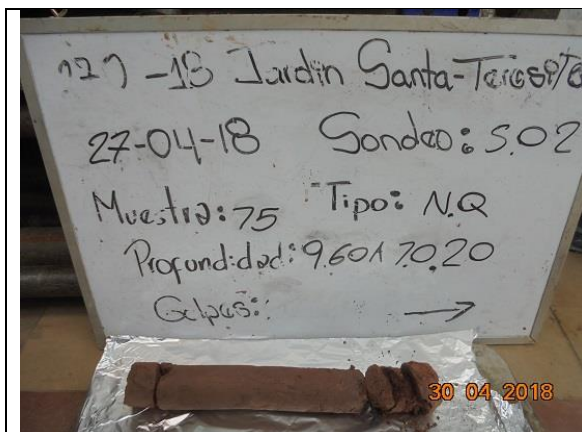 127-18 Jardin Santa-Teresita
27-04-18 Sondeo: S.02
Muestra: 15 Tipo: N.Q
Profundidad: 9.60 A 10.20
Golpes: →
30 04 2018